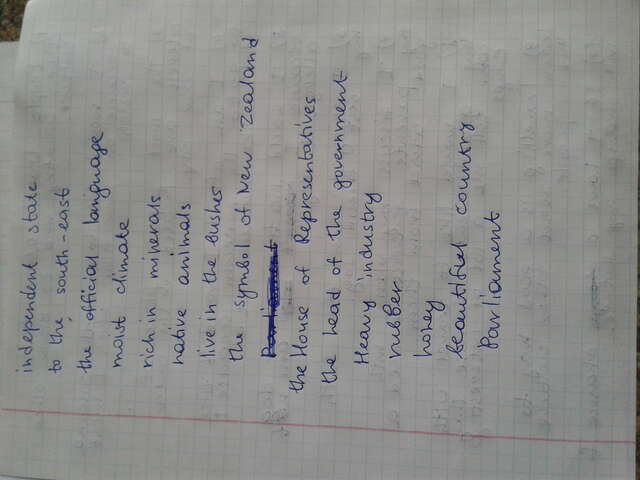 independent state
to the south-east
the official language
moist climate
rich in minerals
native animals
live in the bushes
the symbol of New Zealand
Parliament
the House of Representatives
the head of the government
Heavy industry
rubber
honey
beautiful country
Parliament